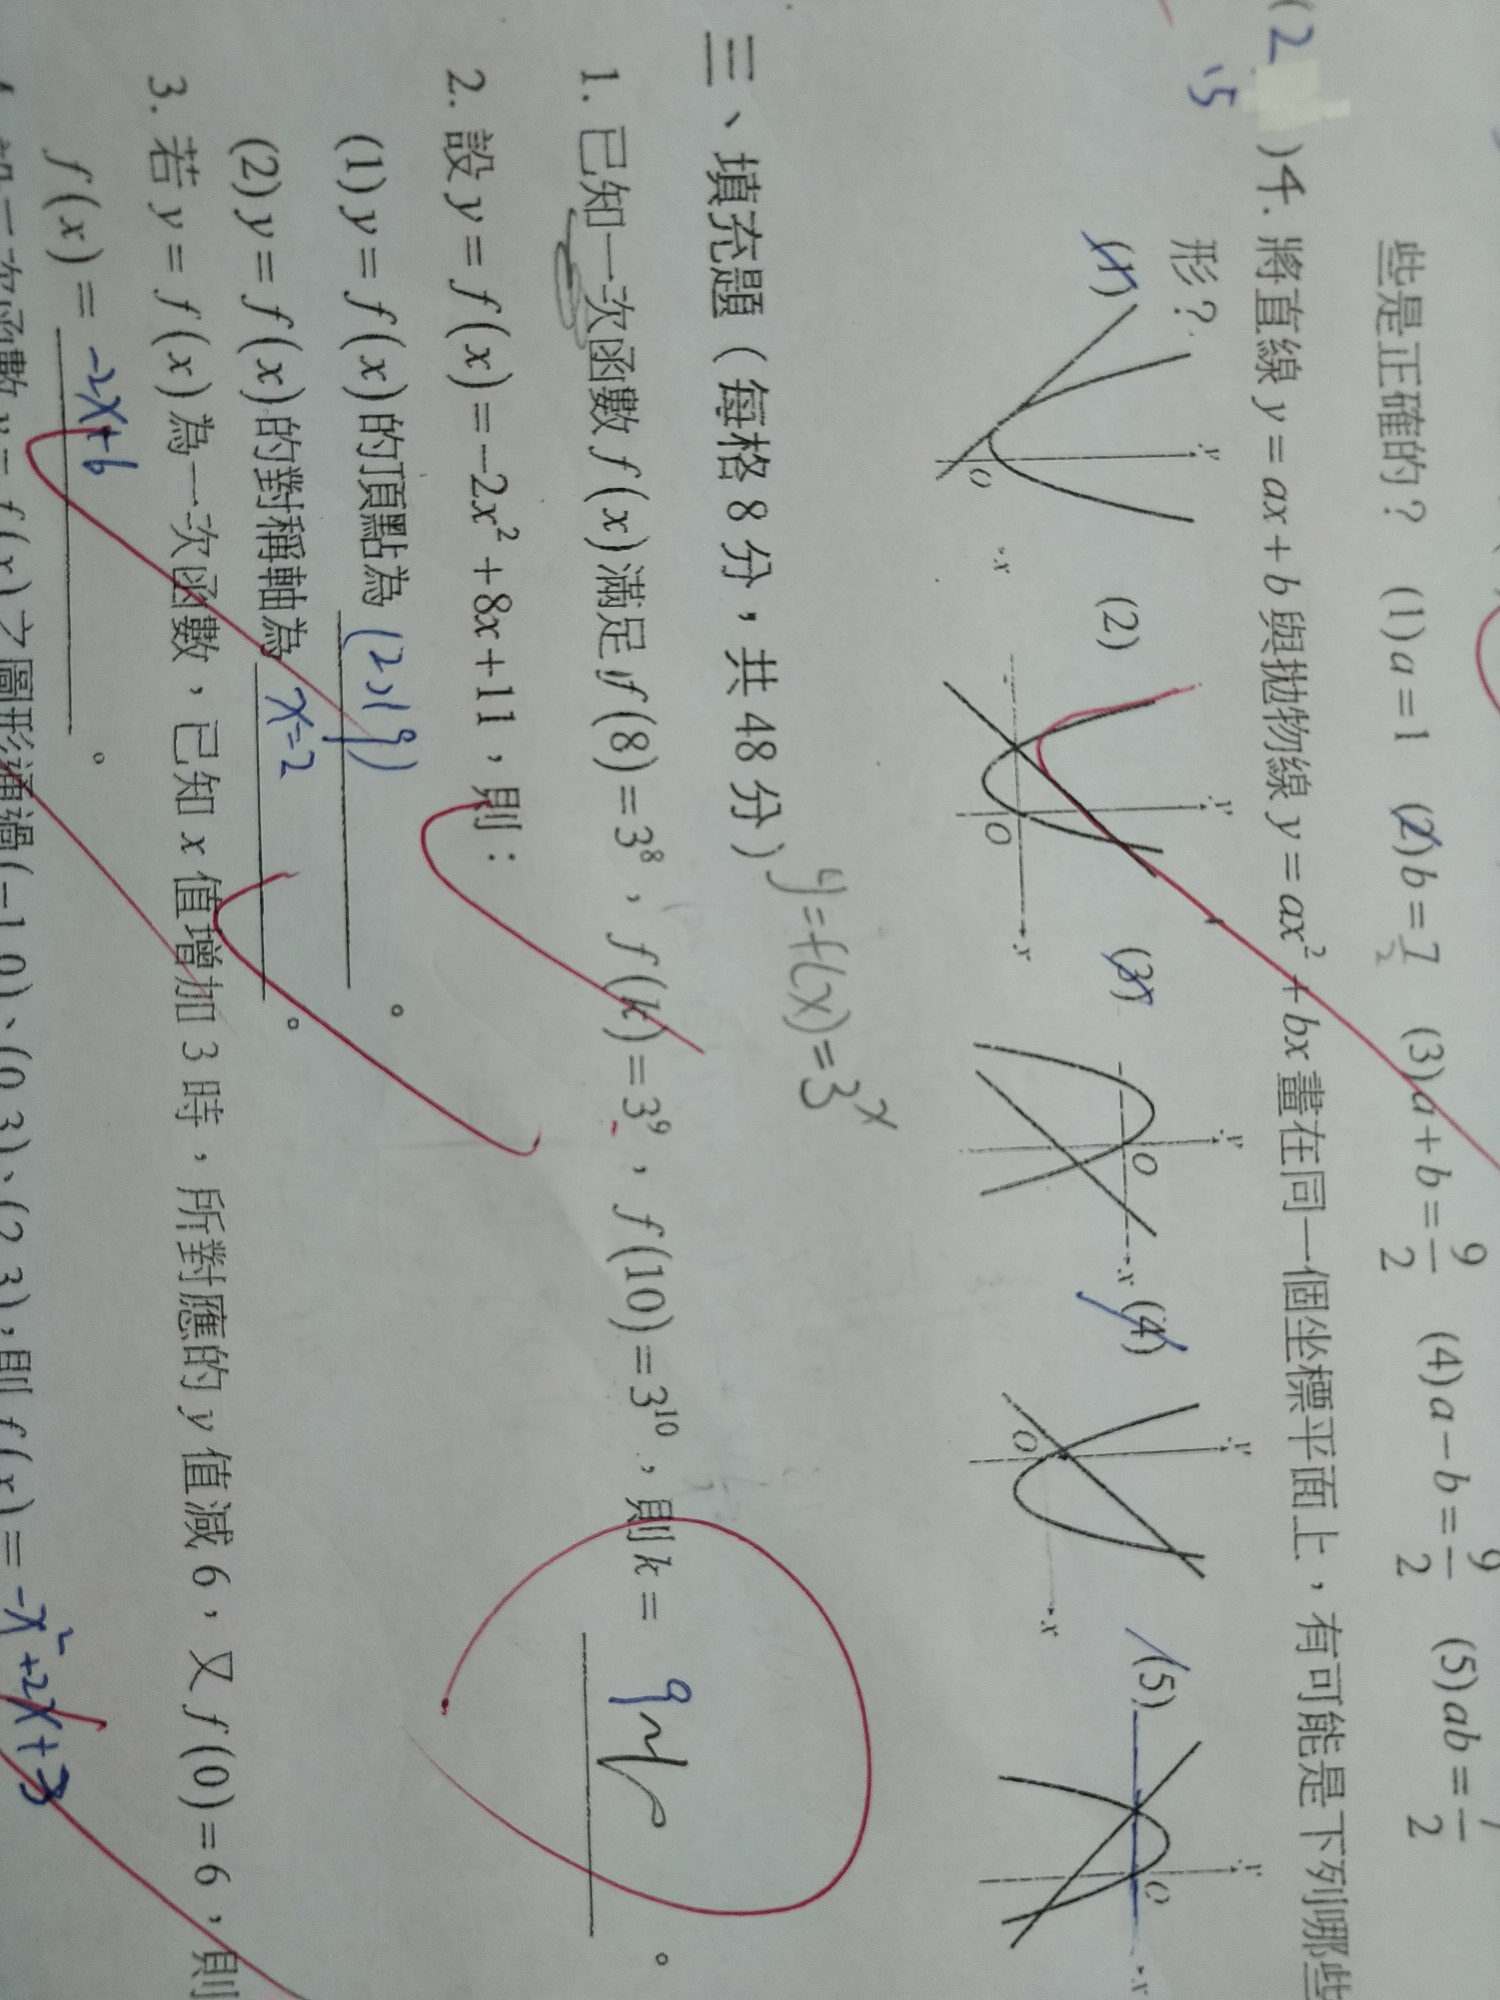 些是正確的？ (1)a=1 (2)b=7/2 (3)a+b=9/2 (4)a-b=9/2 (5)ab=7/2
(2、5 )4. 將直線 y=ax+b 與拋物線 y=ax²+bx 畫在同一個坐標平面上，有可能是下列哪些
形？
(1) (2) (3) (4) (5)
y y y y y
O O O O O
x x x x x
三、填充題（每格 8 分，共 48 分） y=f(x)=3ˣ
1. 已知一次函數 f(x) 滿足 f(8)=3⁸，f(k)=3⁹，f(10)=3¹⁰，則 k=
2. 設 y=f(x)=-2x²+8x+11，則：
(1) y=f(x) 的頂點為 (2,19)。
(2) y=f(x) 的對稱軸為 x=2。
3. 若 y=f(x) 為一次函數，已知 x 值增加 3 時，所對應的 y 值減 6，又 f(0)=6，則
f(x)= -2x+6。
二次函數 y=f(x) 之圖形通過 (-1,0)、(0,3)、(2,3)，則 f(x)= -x²+2x+3